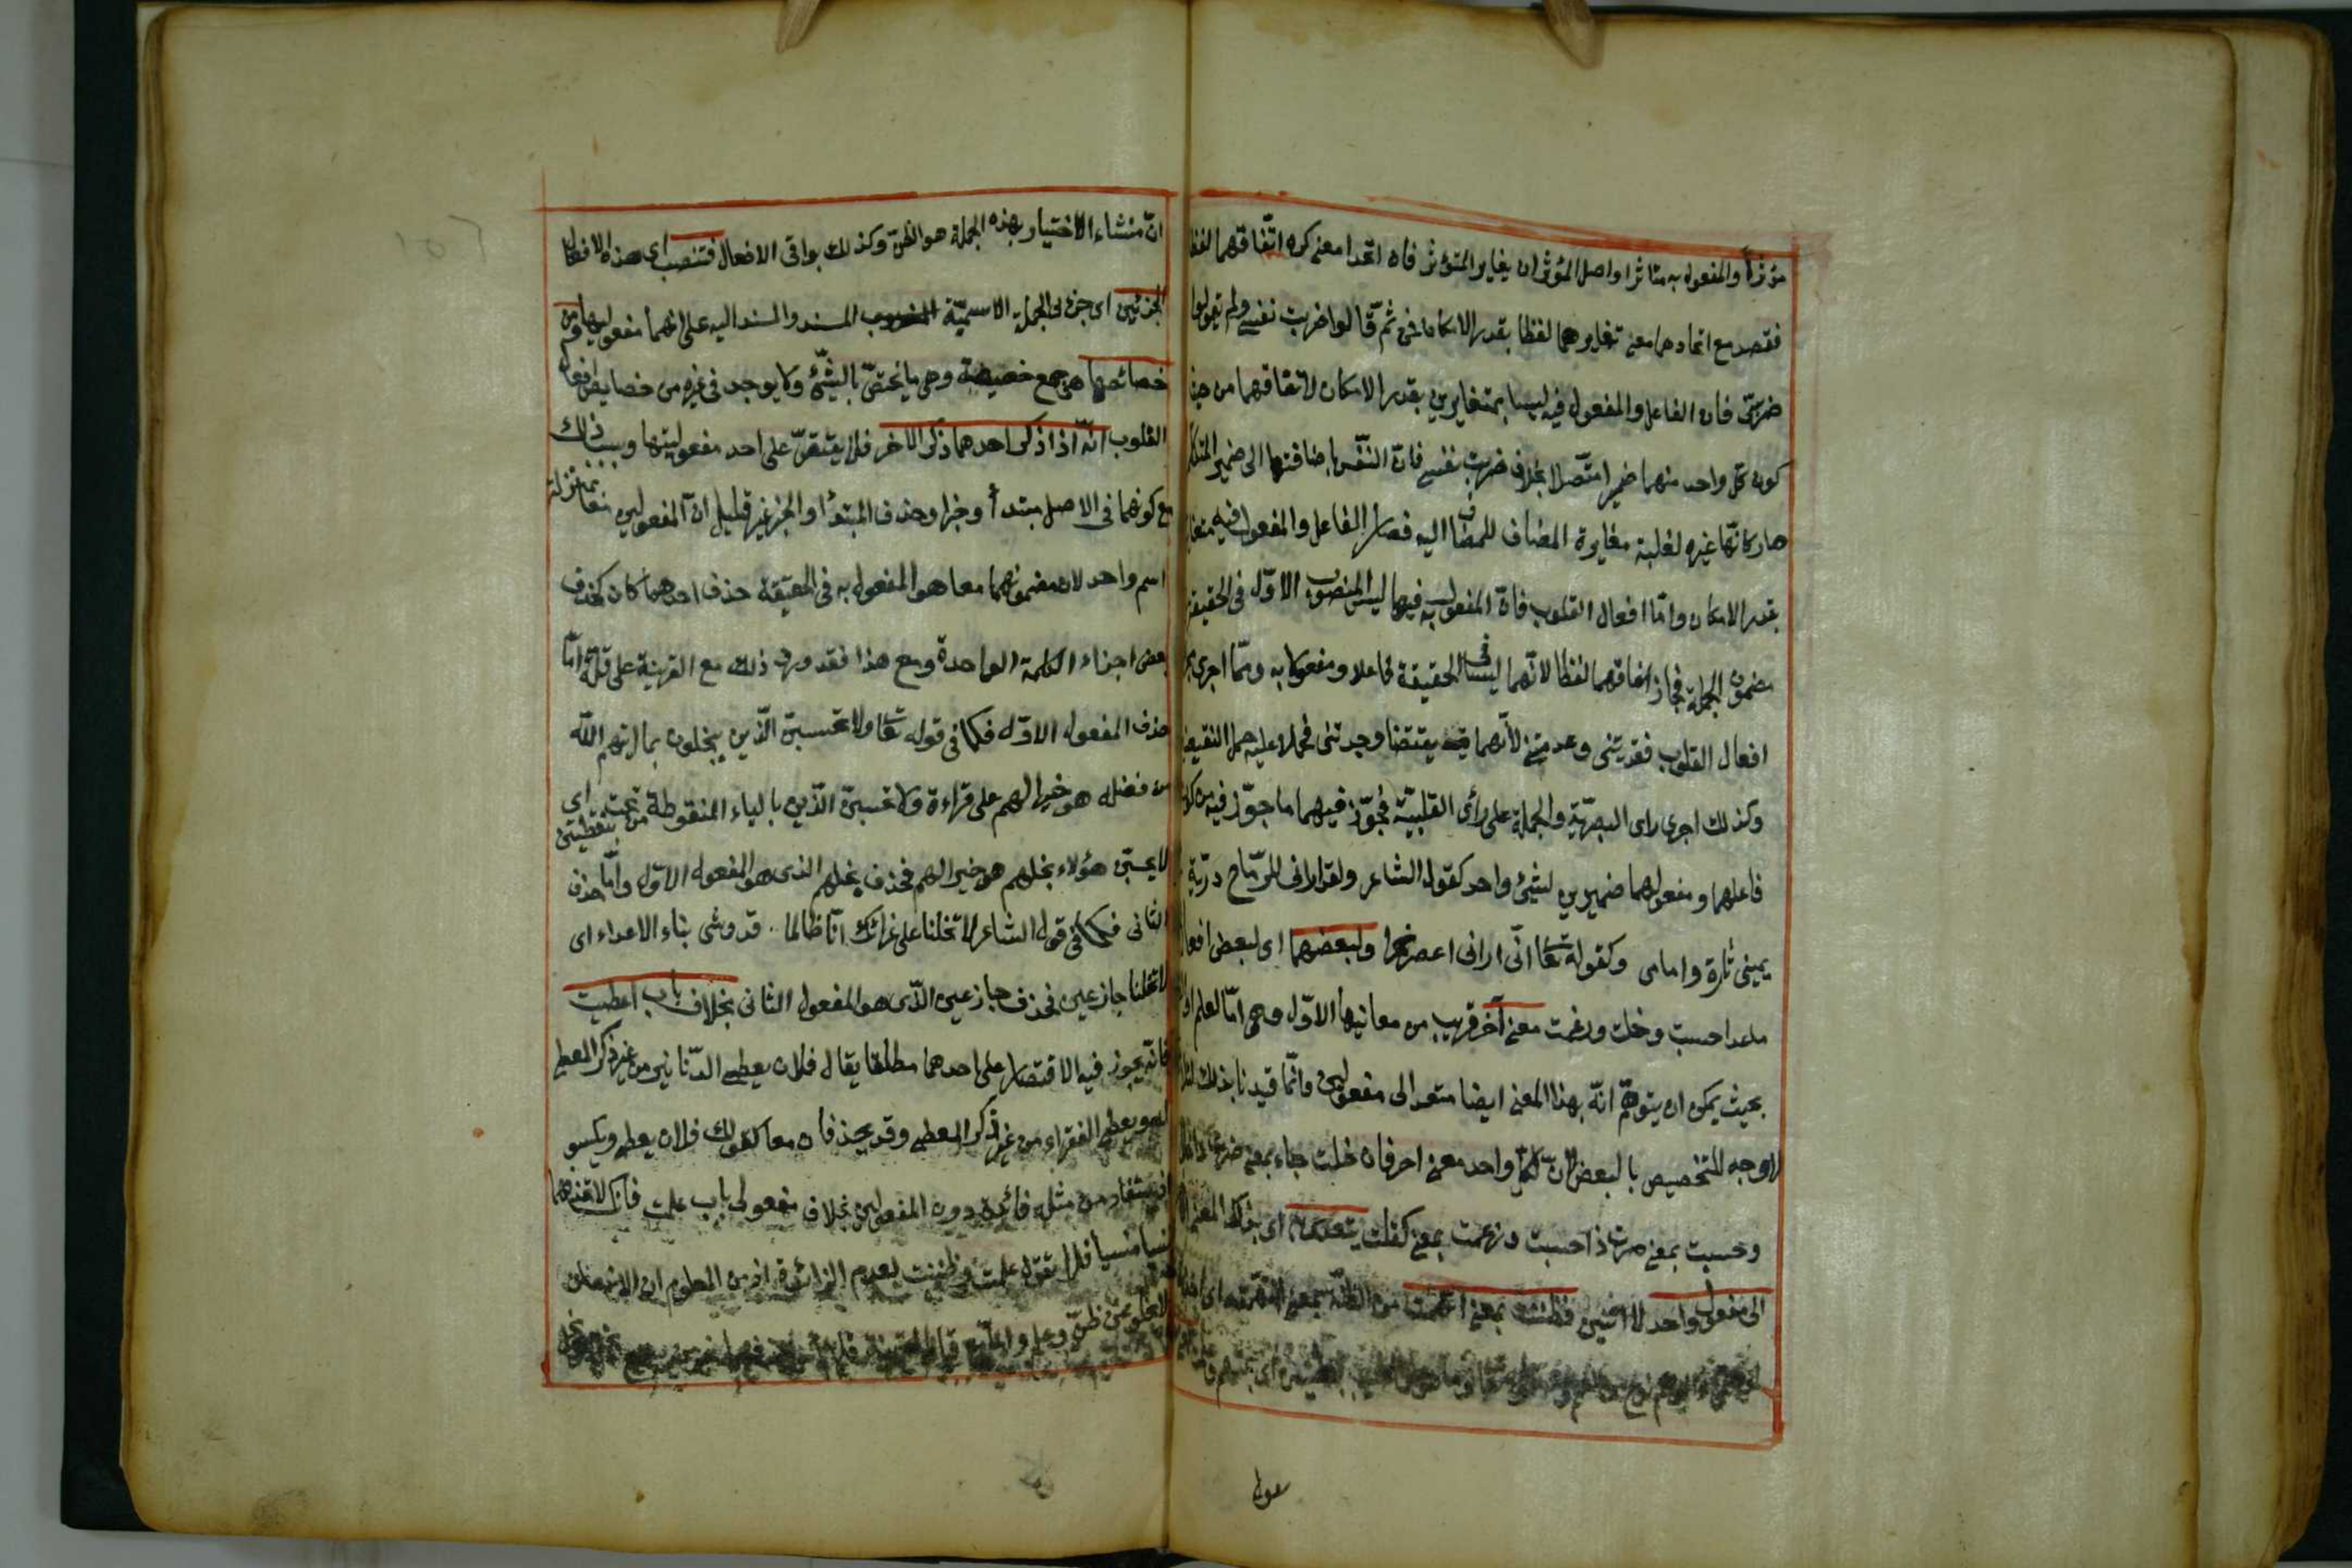 مؤثرا والمفعول به متاثرا واصل المؤثر ان يغاير المتؤثر فان اتحدا معنى كره اتفاقهما لفظا
فقصد مع اتحادهما معنى تغايرهما لفظا بقدر الامكان فمن ثم قالوا ضربت نفسي ولم يقولوا
ضربتني فان الفاعل والمفعول فيه ليسا بمتغايرين بقدر الامكان لاتفاقهما من حيث
كون كل واحد منهما ضميرا متصلا بخلاف ضربت نفسي فان النفس باضافتها الى ضمير المتكلم
صار كانها غيره لغلبة مغايرة المضاف للمضاف اليه فصار الفاعل والمفعول فيه
بقدر الامكان واما افعال القلوب فان المفعول به فيها ليس المنصوب الاول في الحقيقة
مضمون الجملة فجاز اتفاقهما لفظا لانهما ليسا في الحقيقة فاعلا ومفعولا به ومما اجرى
افعال القلوب فقدتني وعدمتني لانهما نقيضا وجدتني فحملا عليه حمل النقيض
وكذلك اجرى راى البصرية والحلمية على راى القلبية فجوز فيهما ما جوز فيه من كون
فاعلهما ومفعولهما ضميرين لشئ واحد كقول الشاعر ولقد اراني للرماح درية
يميني تارة وامامي وكقوله تعا اني اراني اعصر خمرا ولبعضها اى لبعض افعال
ماعدا حسبت وخلت وزعمت معنى آخر قريب من معانيها الاول وهى اما العلم او
بحيث يمكن ان يتوهم انه بهذا المعنى ايضا متعد الى مفعولين وانما قيدنا بذلك
لا وجه للتخصيص بالبعض لان لكل واحد معنى اخر فان خلت جاء بمعنى صرت ذا خال
وحسبت بمعنى صرت ذا حسبت وزعمت بمعنى كفلت يتعدى به اى بذلك المعنى
الى مفعول واحد لا اثنين فظننت بمعنى اتهمت من الظنة بمعنى التهمة اى
عول
ان منشاء الاختيار بهذه الجملة هو الظن وكذلك بواقى الافعال فتنصب اى هذه الافعال
الجزئين اى جزئى الجملة الاسمية المسند والمسند اليه على انهما مفعولان لها ومن
خصائصها هى جمع خصيصة وهى ما يختص بالشئ ولا يوجد فى غيره من خصايص افعال
القلوب انه اذا ذكر احدهما ذكر الآخر فلا يقتصر على احد مفعوليها وسبب ذلك
مع كونهما فى الاصل مبتدأ وخبرا وحذف المبتدأ والخبر غير قليل ان المفعولين معا بمنزلة
اسم واحد لان مضمونهما معا هو المفعول به فى الحقيقة حذف احدهما كان كحذف
بعض اجزاء الكلمة الواحدة ومع هذا فقد ورد ذلك مع القرينة على قلة اما
حذف المفعول الاول فكما فى قوله تعا ولا تحسبن الذين يبخلون بما اتيهم الله
من فضله هو خيرا لهم على قراءة ولا يحسبن الذين بالياء المنقوطة من تحت بنقطتين اى
لا يحسبن هؤلاء بخلهم هو خيرا لهم فحذف بخلهم الذى هو المفعول الاول واما حذف
الثانى فكما فى قول الشاعر لا تخلنا على غرائك انا طالما . قد وشى بنا الاعداء اى
لا تخلنا جازعين فحذف جازعين الذى هو المفعول الثانى بخلاف باب اعطيت
فانه يجوز فيه الاقتصار على احدهما مطلقا يقال فلان يعطى الدنانير من غير ذكر المعطى
له ويعطى الفقراء من غير ذكر المعطى وقد يحذفان معا كقولك فلان يعطى ويكسو
اذ يستفاد من مثله فائدة دون المفعولين بخلاف مفعولى باب علمت فانك لا تحذفهما
نسيا منسيا فلا تقول علمت وظننت لعدم الفائدة اذ من المعلوم ان الانسان
لا يخلو عن ظن وعلم واما مع قيام القرينة فلا